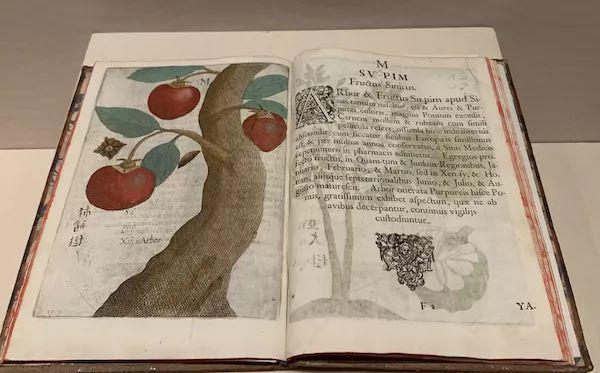 M
Su
Xu Arbor
M
SV-PIM
Fructus Sinicus.
ARbor & Fructus Su-pim apud Si-
nas tantum nascitur, est & Aurei & Pur-
purei coloris, magnus Pomum excedit,
Carnem mollem & rubeam cum simili
pellicula refert, ossicula hinc inde interius
abscondit; cum siccatur ficubus Europæis simillimus
est, & per multos annos conservatus, à Sinis Medicis
in pharmacis adhibetur. Egregius pro-
fructus, in Quam-tum & Junkim Regionibus, Ja-
nuario, Februario, & Martio, sed in Xen-sy, & Ho-
nam, aliisque septentrionalibus Junio, & Julio, & Au-
gusto maturescit. Arbor onerata Purpureis hisce Po-
mis, gratissimum exhibet aspectum, quæ ne ab
avibus decerpantur, continuis vigiliis
custodiuntur.
F YA.